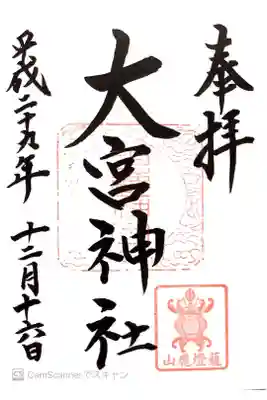 奉拝
大宮神社
平成二十九年 十二月十六日
山鹿燈籠
CamScanner でスキャン